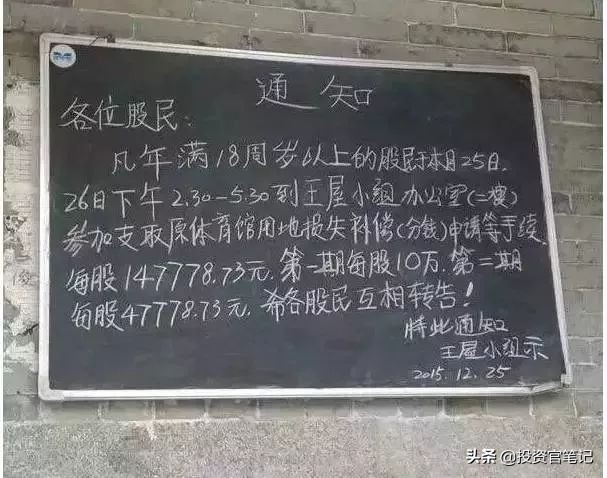 通知
各位股民：
凡年满18周岁以上的股民于本月25日、
26日下午2.30—5.30到王屋小组办公室(二楼)
参加支取原体育馆用地损失补偿(分钱)申请等手续.
每股147778.73元.第一期每股10万.第二期
每股47778.73元.希各股民互相转告!
特此通知
王屋小组示
2015.12.25
头条 @投资官笔记